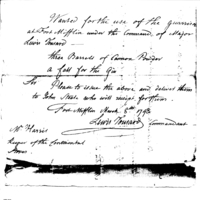 Wanted for the use of the Garrison
at Fort Mifflin under the Command of Major
Lewis
three Barrels of Cannon Powder
a fall for the Gin
Sir Please to issue the above and deliver them
to John who will receipt for them
Fort Mifflin March
Lewis Commandant
Mr Harris
Keeper of the Continental
Stores